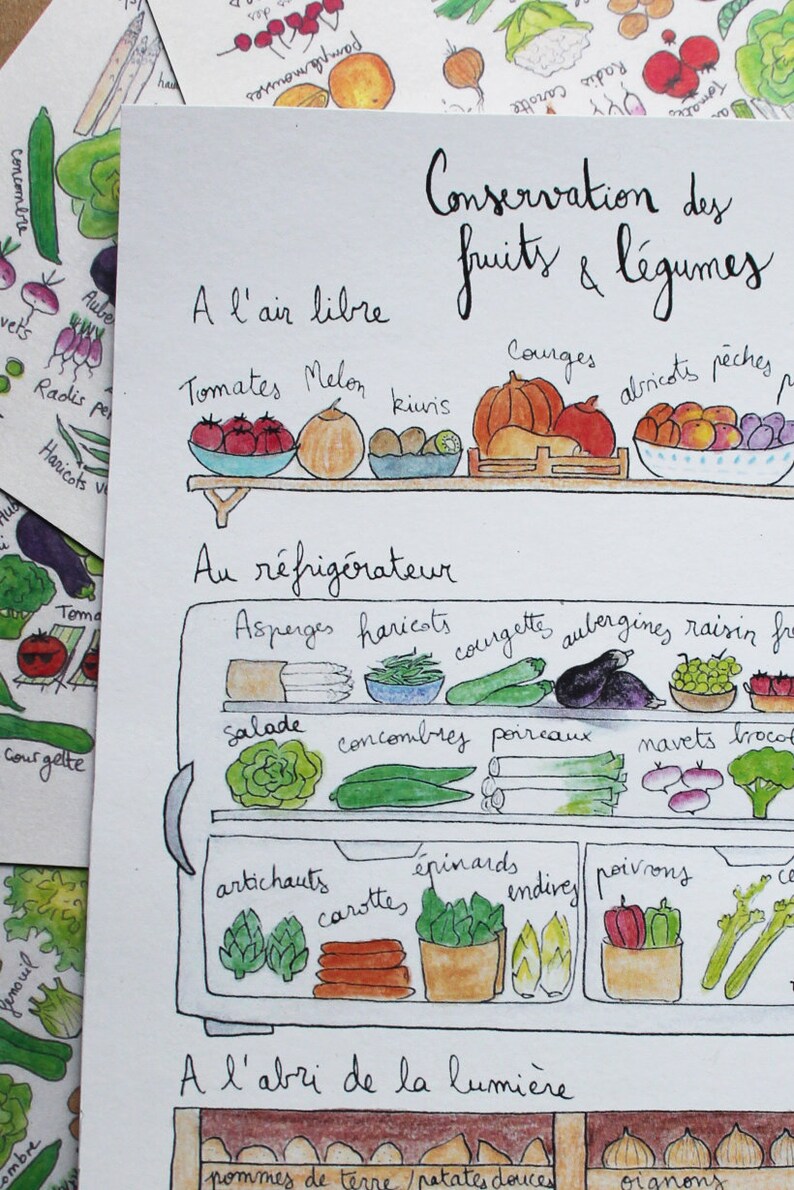 pamplemousses
Radis
Carotte
Tomates
concombre
Radis
Haricots
courgette
fenouil
Conservation des
fruits & légumes
A l'air libre
Tomates Melon kiwis Courges abricots pêches
Au réfrigérateur
Asperges haricots courgettes aubergines raisin
salade concombres poireaux navets
artichauts carottes épinards endives poivrons
A l'abri de la lumière
pommes de terre / patates douces oignons